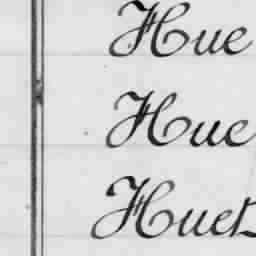 Hue
Hue
Huet